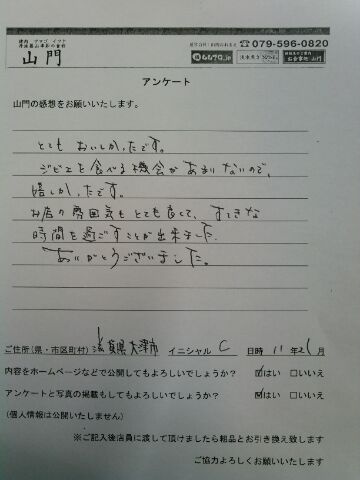 山門
☎079-596-0820
6670.jp
お食事処 山門
アンケート
山門の感想をお願いいたします。
とても おいしかったです。
ジビエを食べる機会があまりないので、
嬉しかったです。
お店の雰囲気もとても良くて、すてきな
時間を過ごすことが出来ました。
ありがとうございました。
ご住所(県・市区町村) 滋賀県大津市 イニシャル C 日時 11 年 21 月
内容をホームページなどで公開してもよろしいでしょうか? ☑はい □いいえ
アンケートと写真の掲載もしてもよろしいでしょうか? ☑はい □いいえ
(個人情報は公開いたしません)
※ご記入後店員に渡して頂けましたら粗品とお引き換え致します
ご協力よろしくお願いいたします